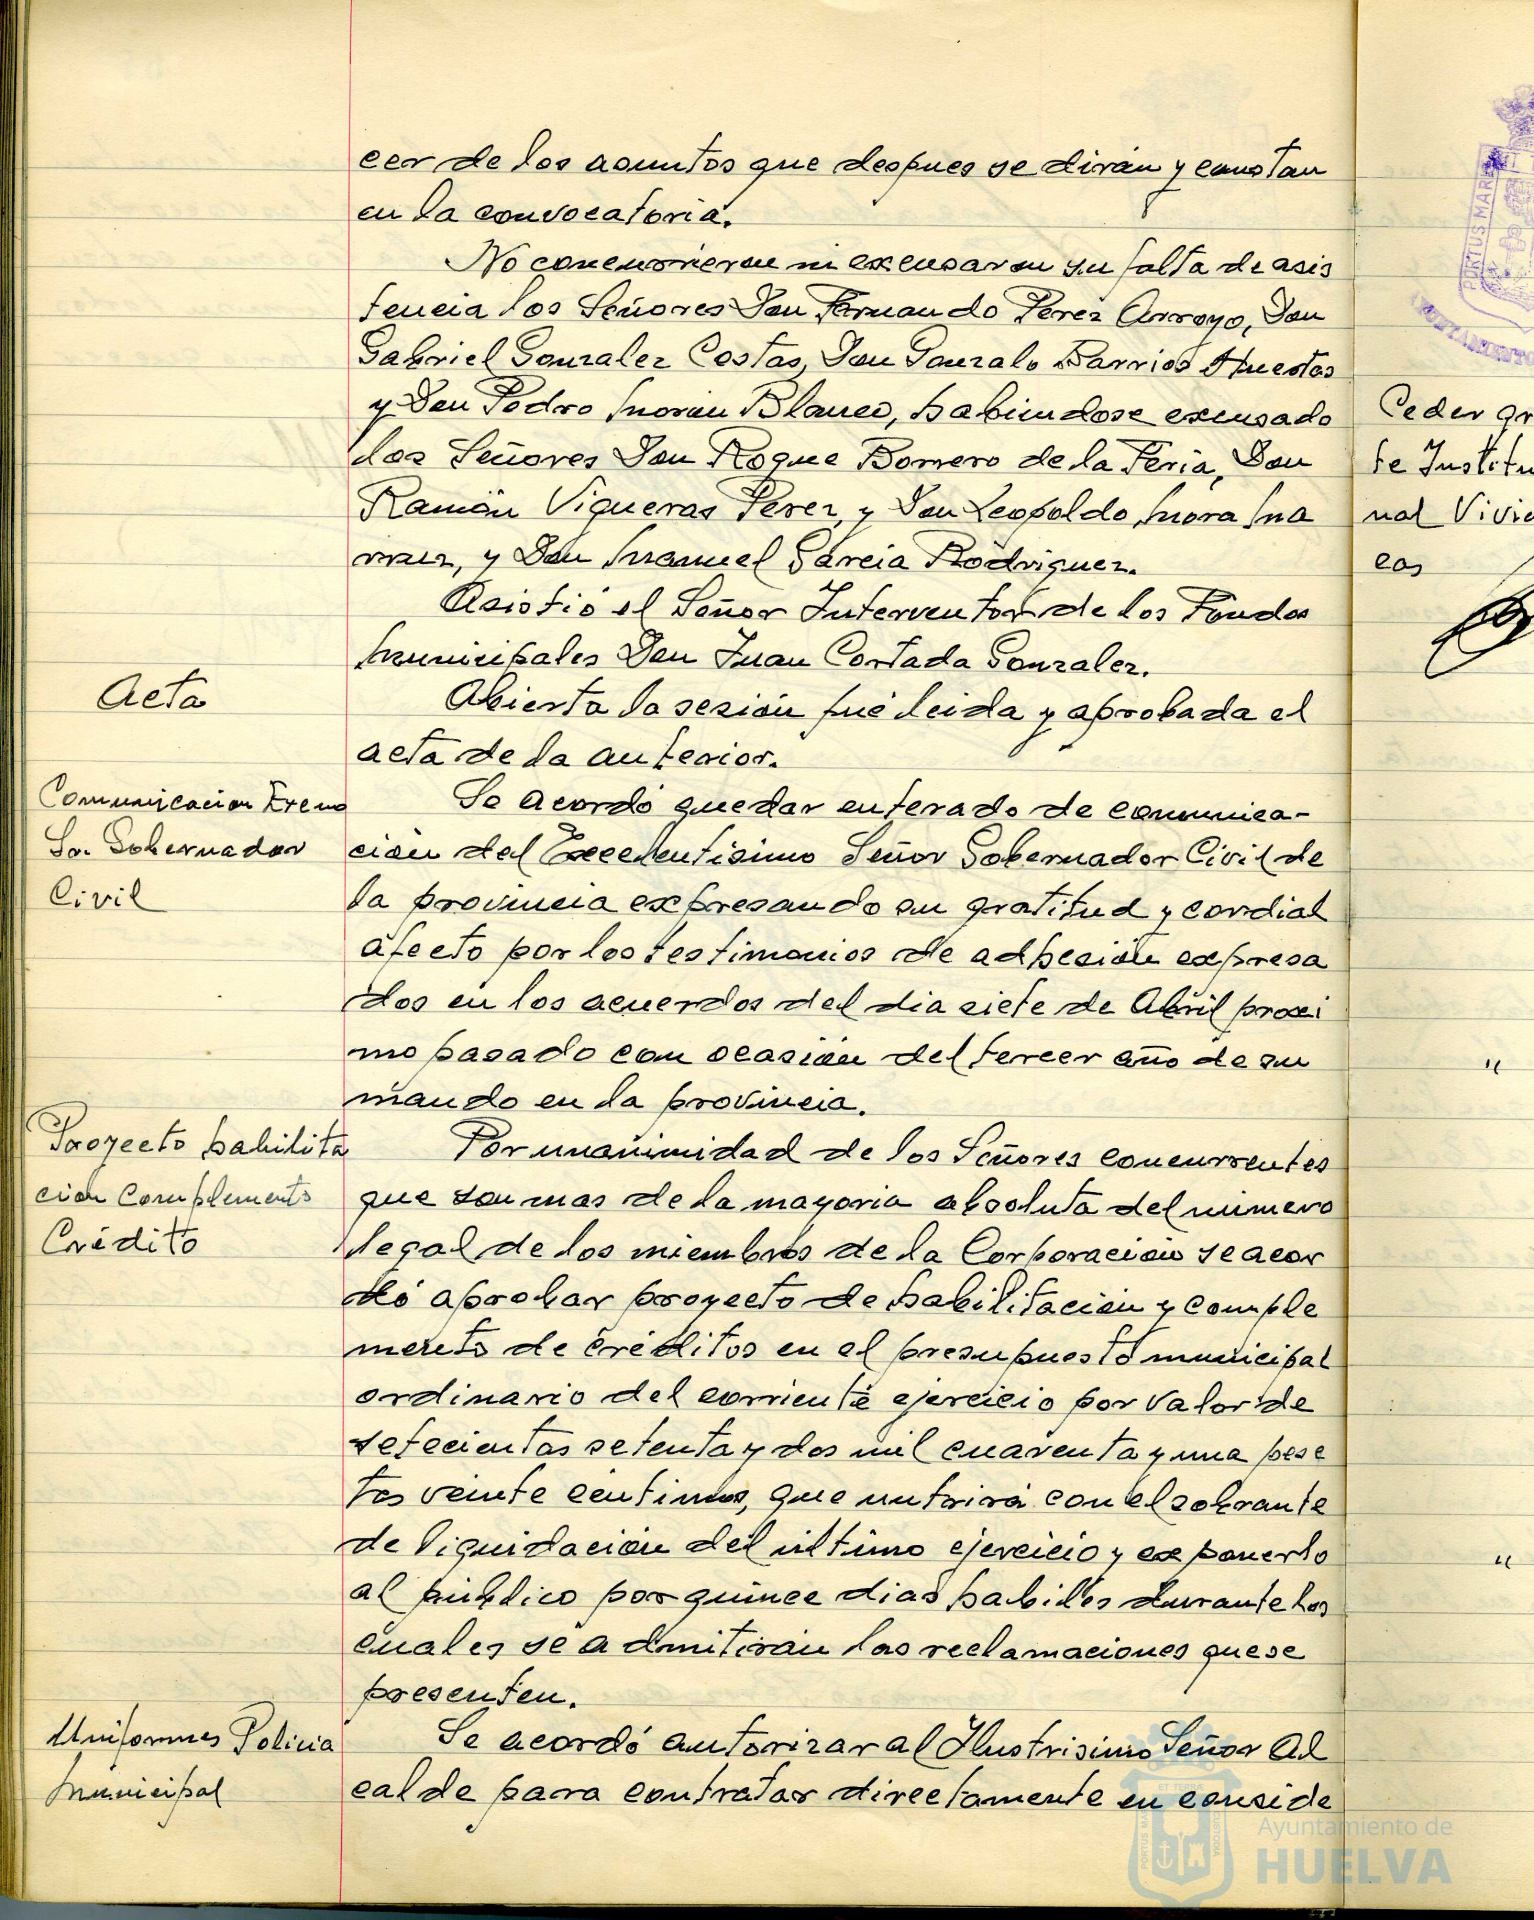 cer de los asuntos que despues se dirán y constan
en la convocatoria.
No concurrieron ni excusaron su falta de asis
tencia los Señores Don Fernando Perez Arroyo, Don
Gabriel Gonzalez Costas, Don Gonzalo Barrios Huestas
y Don Pedro Morón Blanco, habiendose excusado
los Señores Don Roque Borrero de la Feria, Don
Ramón Vigueras Perez, y Don Leopoldo Mora Ma
rruz, y Don Manuel García Rodriguez.
Asistió el Señor Interventor de los Fondos
Municipales Don Juan Cortada Gonzalez.
Acta
Abierta la sesión fué leida y aprobada el
acta de la anterior.
Comunicacion Excmo
Sr. Gobernador
Civil
Se acordó quedar enterado de comunica-
ción del Excelentisimo Señor Gobernador Civil de
la provincia expresando su gratitud y cordial
afecto por los testimonios de adhesión expresa
dos en los acuerdos del dia siete de Abril proxi
mo pasado con ocasión del tercer año de su
mando en la provincia.
Proyecto habilita
cion Complemento
Crédito
Por unanimidad de los Señores concurrentes
que son mas de la mayoria absoluta del número
legal de los miembros de la Corporación se acor
dó aprobar proyecto de habilitación y comple
mento de créditos en el presupuesto municipal
ordinario del corriente ejercicio por valor de
setecientas setenta y dos mil cuarenta y una pese
tas veinte centimos, que nutrirá con el sobrante
de liquidación del último ejercicio y exponerlo
al público por quince dias habiles durante los
cuales se admitirán las reclamaciones que se
presenten.
Uniformes Policia
Municipal
Se acordó autorizar al Ilustrisimo Señor Al
calde para contratar directamente en conside
Ceder gr
te Institu
nal Vivie
cas
"
"
PORTUS MARI
AYUNTAMIENTO
Ayuntamiento de
HUELVA